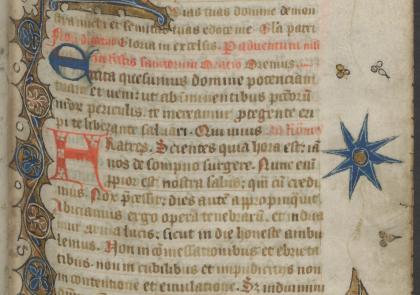 vias tuas domine demon
stra michi et semitas tuas edoce me. Gl'a patri
Non dicatur Gloria in excelsis. P aduentum
Oratio Oremus.
Excita quesumus domine potenciam
tuam et veni: ut ab iminentibus pctōrū
nr̄or periculis. te mereamur ptegente eri
pi te liberante saluari. Qui viuis Ad Romaos
Fratres. Scientes quia hora est: iā
nos de sompno surgere. Nunc eni
ppior est nostra salus; qm cū credi
mus. Nox pcessit; dies autē appropinquet
Abiciamus ergo opera tenebrarū. et indua
mur arma lucis; sicut in die honeste ambu
lemus. Non in cōmessationibus et ebrieta
tibus. non in cubilibus et impudicitijs non
in contentione et emulatione. Sz induimini